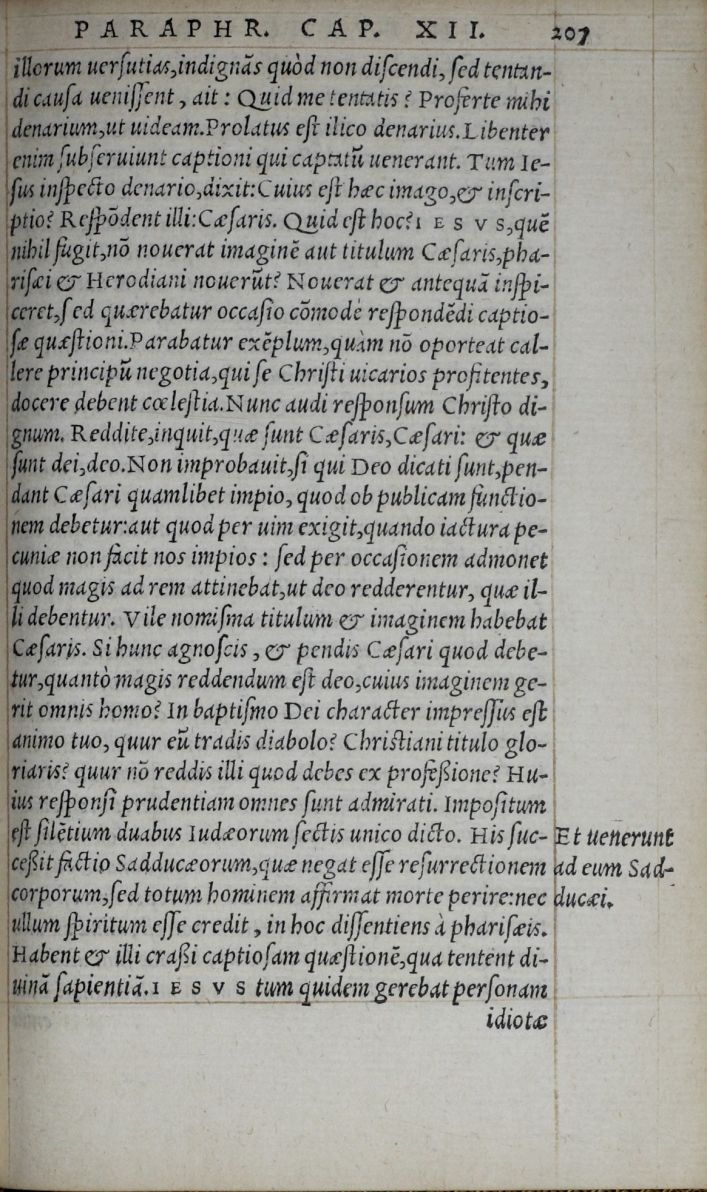 PARAPHR. CAP. XII. 207
illorum uerſutias,indignãs quòd non diſcendi, ſed tentan-
di cauſa ueniſſent, ait: Quid me tentatis? Proferte mihi
denarium,ut uideam.Prolatus eſt ilico denarius.Libenter
enim ſubſeruiunt captioni qui captatũ uenerant. Tum Ie-
ſus inſpecto denario,dixit:Cuius eſt hæc imago,& inſcri-
ptio? Reſpõdent illi:Cæſaris. Quid eſt hoc? I E S V S,quẽ
nihil fugit,nõ nouerat imaginẽ aut titulum Cæſaris,pha-
riſæi & Herodiani nouerũt? Nouerat & antequã inſpi-
ceret,ſed quærebatur occaſio cõmodè reſpondẽdi captio-
ſæ quæſtioni.Parabatur exẽplum,quàm nõ oporteat cal-
lere principũ negotia,qui ſe Chriſti uicarios profitentes,
docere debent cœleſtia.Nunc audi reſponſum Chriſto di-
gnum. Reddite,inquit,quæ ſunt Cæſaris,Cæſari: & quæ
ſunt dei,deo.Non improbauit,ſi qui Deo dicati ſunt,pen-
dant Cæſari quamlibet impio, quod ob publicam functio-
nem debetur:aut quod per uim exigit,quando iactura pe-
cuniæ non facit nos impios: ſed per occaſionem admonet
quod magis ad rem attinebat,ut deo redderentur, quæ il-
li debentur. Vile nomiſma titulum & imaginem habebat
Cæſaris. Si hunc agnoſcis, & pendis Cæſari quod debe-
tur,quantò magis reddendum eſt deo,cuius imaginem ge-
rit omnis homo? In baptiſmo Dei character impreſſus eſt
animo tuo, quur eũ tradis diabolo? Chriſtiani titulo glo-
riaris? quur nõ reddis illi quod debes ex profeßione? Hu-
ius reſponſi prudentiam omnes ſunt admirati. Impoſitum
eſt ſilẽtium duabus Iudæorum ſectis unico dicto. His ſuc-
ceßit factio Sadducæorum,quæ negat eſſe reſurrectionem
corporum,ſed totum hominem affirmat morte perire:nec
ullum ſpiritum eſſe credit, in hoc diſſentiens à phariſæis.
Habent & illi craßi captioſam quæſtionẽ,qua tentent di-
uinã ſapientiã. I E S V S tum quidem gerebat perſonam
idiotæ
Et uenerunt
ad eum Sad-
ducæi.